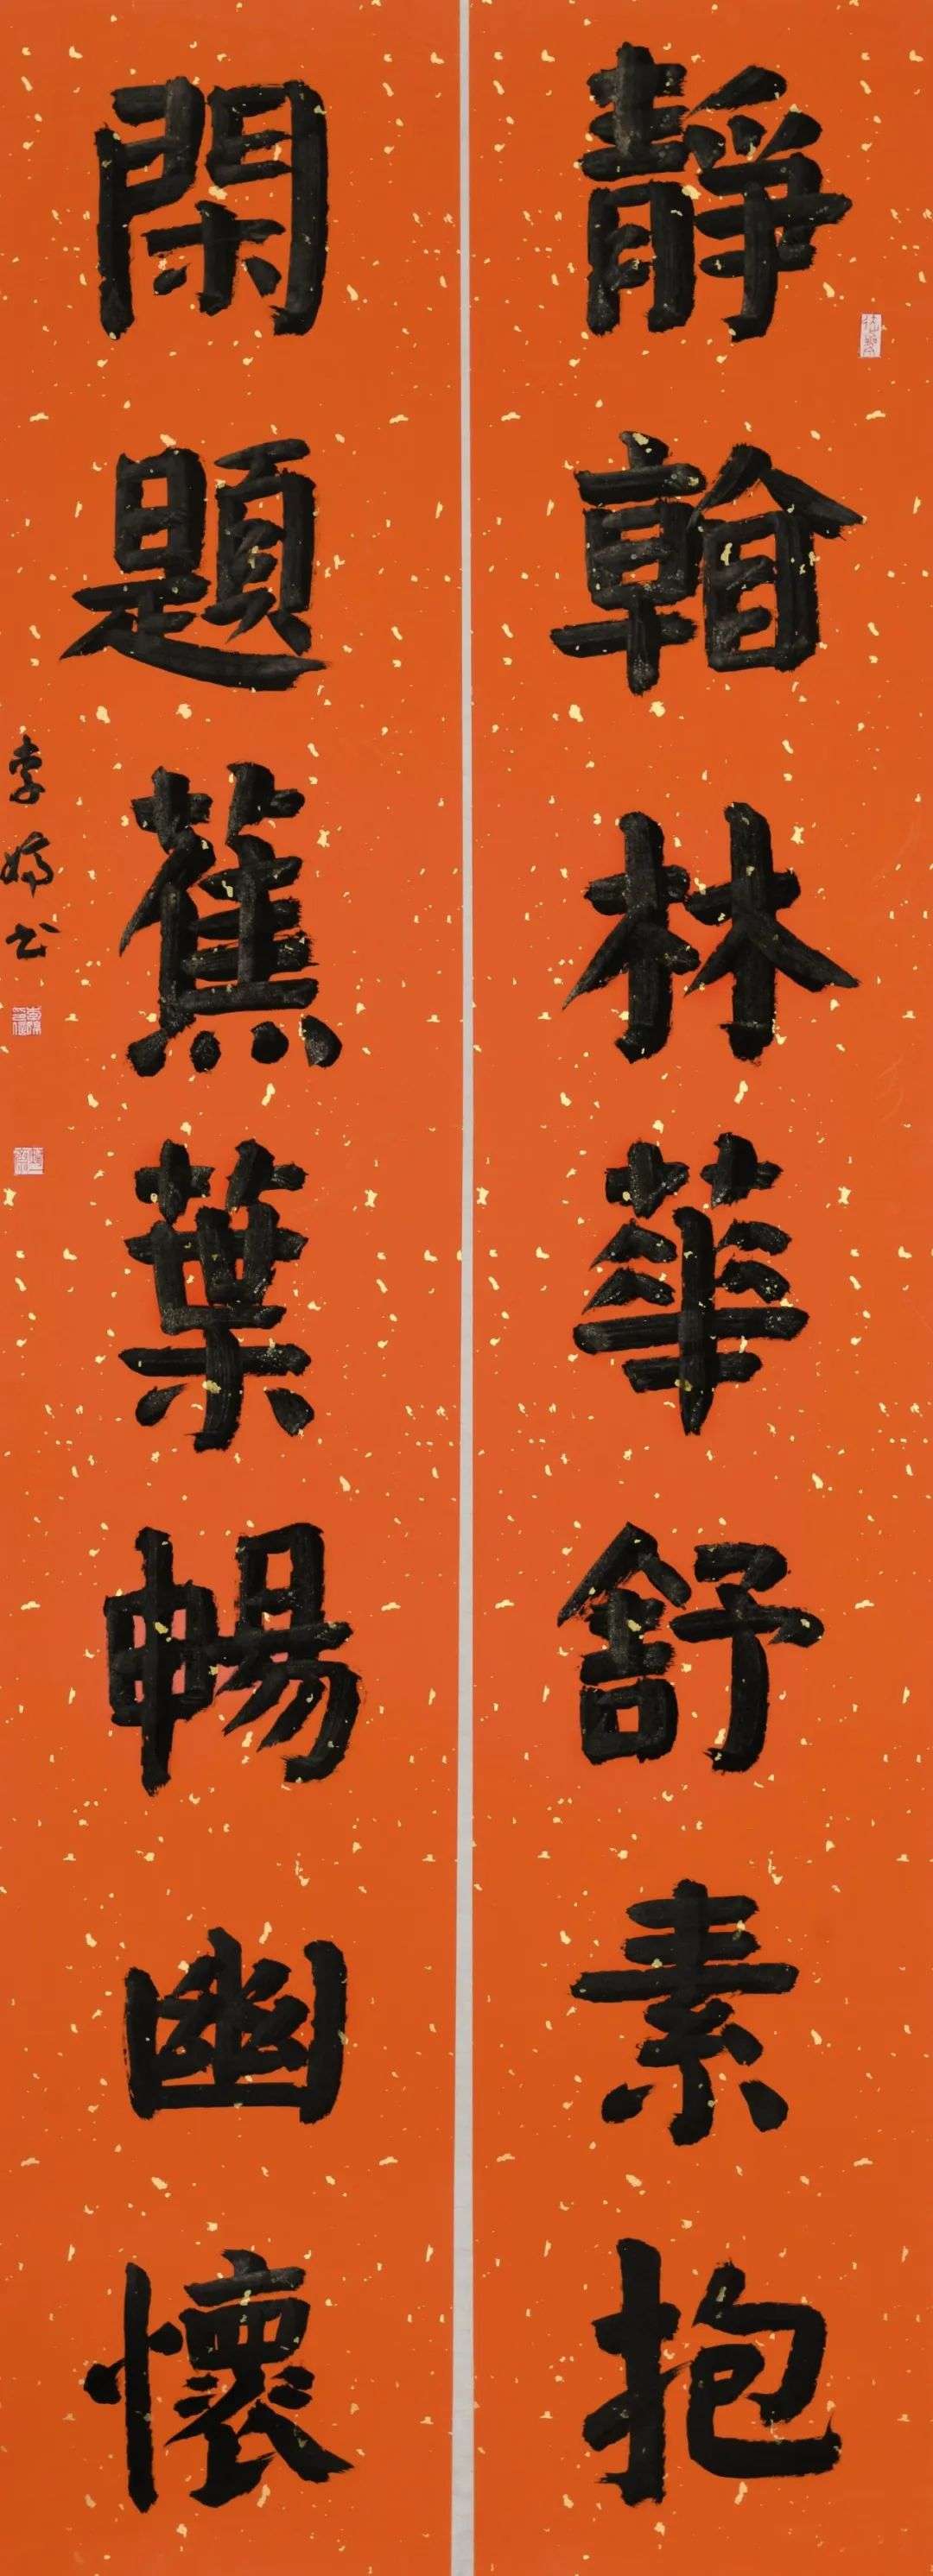 靜翰林華舒素抱
閑題蕉葉暢幽懷
李嬌书